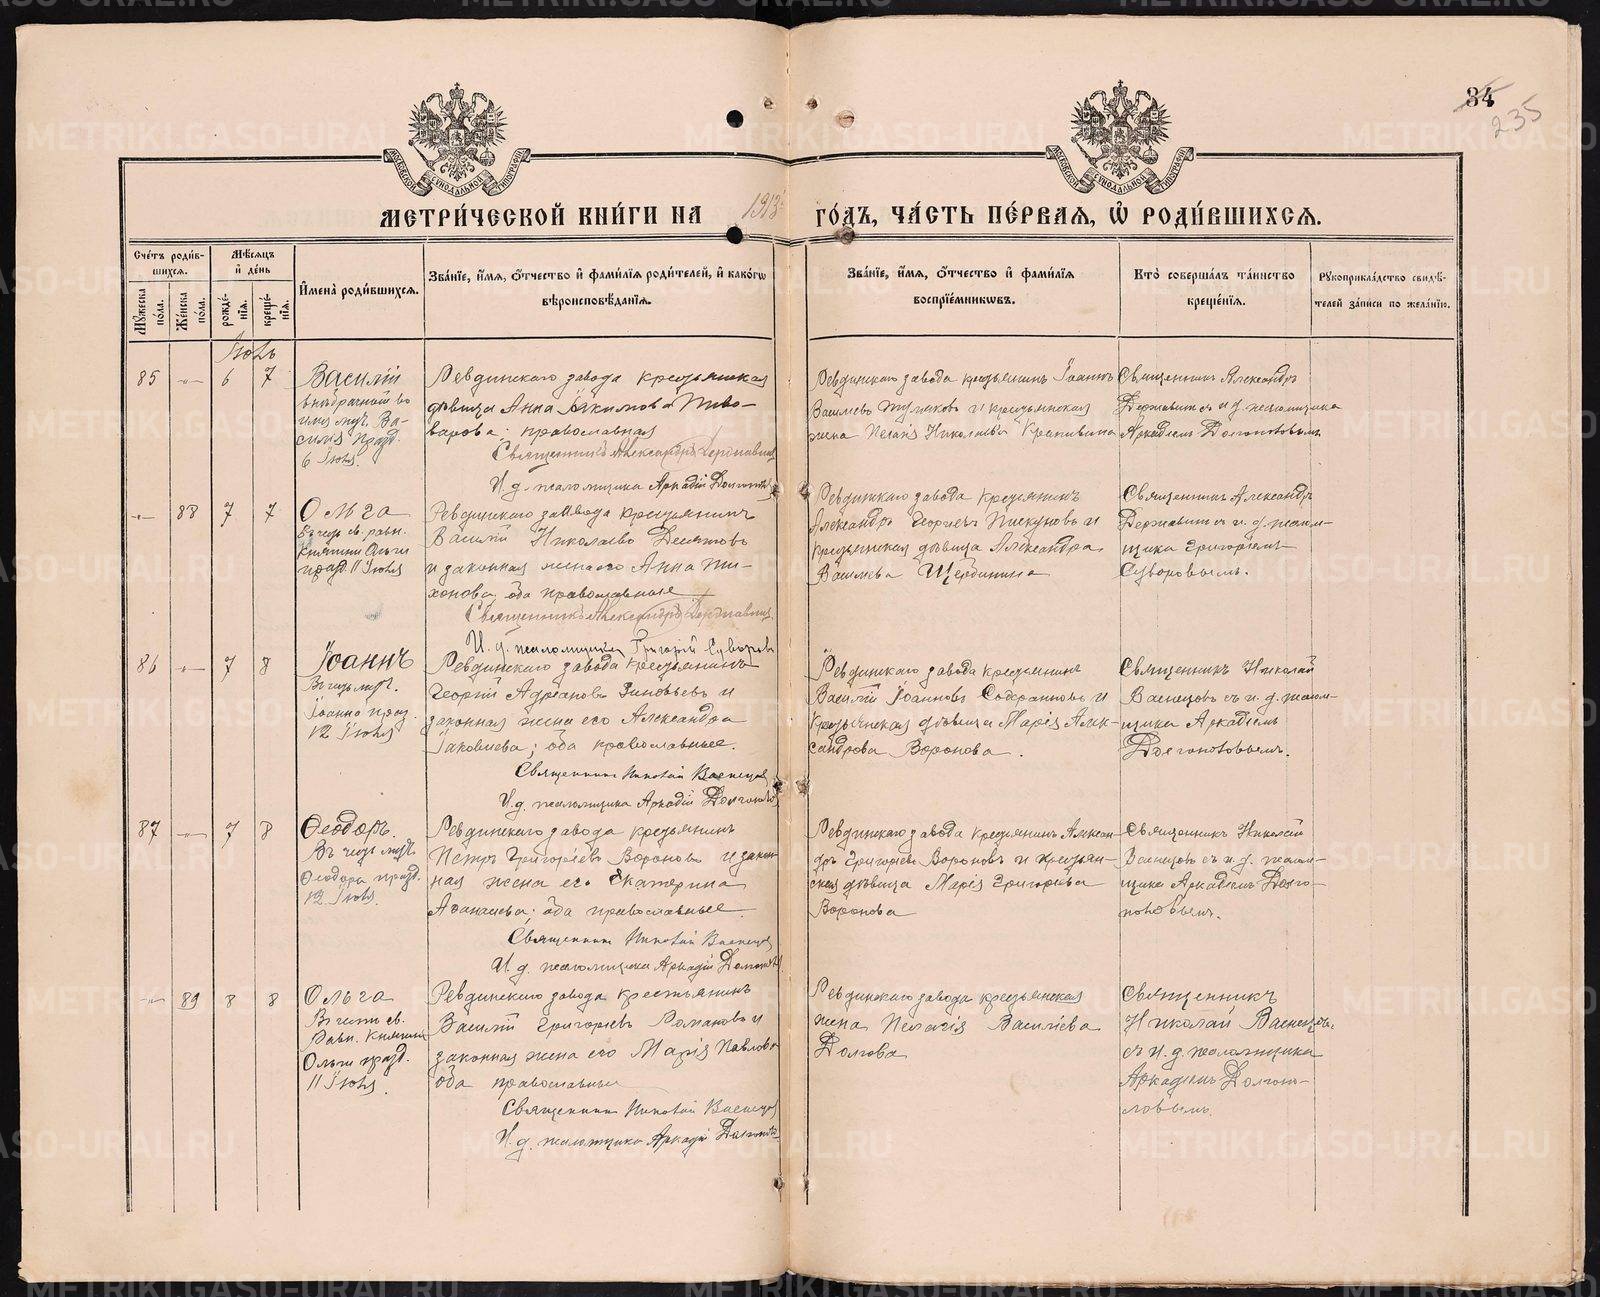 34
235
МОСКОВСКОЙ СѴНОДАЛЬНОЙ ТИПОГРАФІИ
МОСКОВСКОЙ СѴНОДАЛЬНОЙ ТИПОГРАФІИ
МЕТРИ́ЧЕСКОЙ КНИ́ГИ НА 1913 ГО́ДЪ, ЧА́СТЬ ПЕ́РВАЯ, Ѡ РОДИ́ВШИХСЯ.
Сче́тъ роди́в-
шихся.
Мꙋжеска по́ла.
Же́нска по́ла.
Мѣ́сяцъ
и҆ де́нь
рожде́-
нїя.
креще́-
нїя.
И҆мена̀ роди́вшихся.
Зва́нїе, и҆́мя, ѻ҆́тчество и҆ фами́лїя роди́телей, и҆ како́гѡ
вѣроисповѣ́данїя.
Зва́нїе, и҆́мя, ѻ҆́тчество и҆ фами́лїя
воспрїе́мникѡвъ.
Кто̀ соверша́лъ та́инство
креще́нїя.
Рꙋкоприкла́дство свидѣ́-
телей за́писи по жела́нїю.
Іюль
85 -"- 6 7
Василій
внѣбрачный во
имя муч. Ва-
силія празд.
6 Іюля.
Ревдинскаго завода крестьянская
дѣвица Анна Іакимова Пиво-
варова; православная
Священникъ Александръ Державинъ
И. д. псаломщика Аркадій
Ревдинскаго завода крестьянинъ Іоаннъ
Васильевъ и крестьянская
жена Николаева
Священникъ Александръ
Державинъ съ и. д. псаломщика
Аркадіемъ
-"- 88 7 7
Ольга
Въ честь св. равн.
Княгини Ольги
празд. 11 Іюля
Ревдинскаго завода крестьянинъ
Василій Николаевъ
и законная жена его Анна Ти-
хонова, оба православные
Священникъ Александръ Державинъ
И. д. псаломщика Григорій Суворовъ
Ревдинскаго завода крестьянинъ
Александръ Георгіевъ Пискуновъ и
крестьянская дѣвица Александра
Васильева Щербинина
Священникъ Александръ
Державинъ съ и. д. псалом-
щика Григоріемъ
Суворовымъ.
86 -"- 7 8
Іоаннъ
Въ честь муч.
Іоанна празд.
12 Іюля
Ревдинскаго завода крестьянинъ
Георгій Адріановъ Зиновьевъ и
законная жена его Александра
Іаковлева; оба православные.
Священникъ Николай Васнецовъ
И. д. псаломщика Аркадій
Ревдинскаго завода крестьянинъ
Василій Іоанновъ и
крестьянская дѣвица Марія Алек-
сандрова Воронова.
Священникъ Николай
Васнецовъ съ и. д. псалом-
щика Аркадіемъ
87 -"- 7 8
Ѳеодоръ.
Въ честь муч.
Ѳеодора празд.
12 Іюля.
Ревдинскаго завода крестьянинъ
Петръ Григорьевъ Вороновъ и закон-
ная жена его Екатерина
Аѳанасьева; оба православные
Священникъ Николай Васнецовъ
И. д. псаломщика Аркадій
Ревдинскаго завода крестьянинъ Алексан-
дръ Григорьевъ Вороновъ и крестьян-
ская дѣвица Марія Григорьева
Воронова
Священникъ Николай
Васнецовъ съ и. д. псалом-
щика Аркадіемъ
-"- 89 8 8
Ольга
Въ честь св.
Равн. Княгини
Ольги празд.
11 Іюля.
Ревдинскаго завода крестьянинъ
Василій Григорьевъ Романовъ и
законная жена его Марія Павлова
оба православные
Священникъ Николай Васнецовъ
И. д. псаломщика Аркадій
Ревдинскаго завода крестьянская
жена Пелагія Васильева
Долгова
Священникъ
Николай Васнецовъ
съ и. д. псаломщика
Аркадіемъ
METRIKI.GASO-URAL.RU